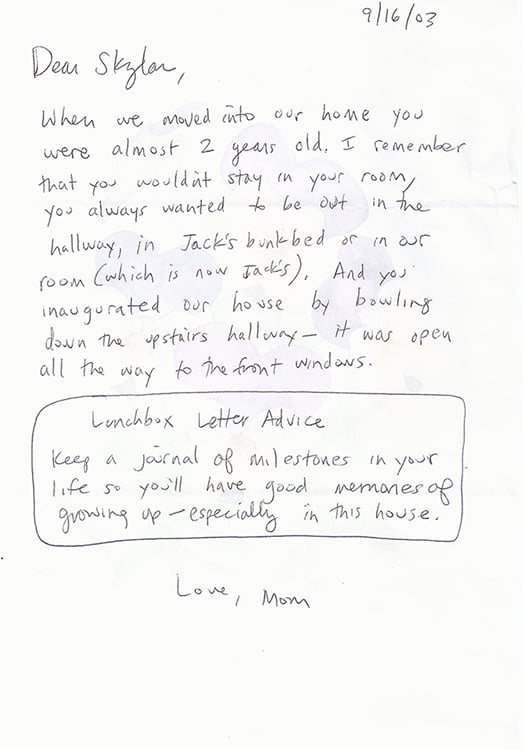 9/16/03
Dear Skylar,
When we moved into our home you
were almost 2 years old. I remember
that you wouldn't stay in your room,
you always wanted to be out in the
hallway, in Jack's bunkbed or in our
room (which is now Jack's). And you
inaugurated our house by bowling
down the upstairs hallway – it was open
all the way to the front windows.
Lunchbox Letter Advice
Keep a journal of milestones in your
life so you'll have good memories of
growing up – especially in this house.
Love, Mom